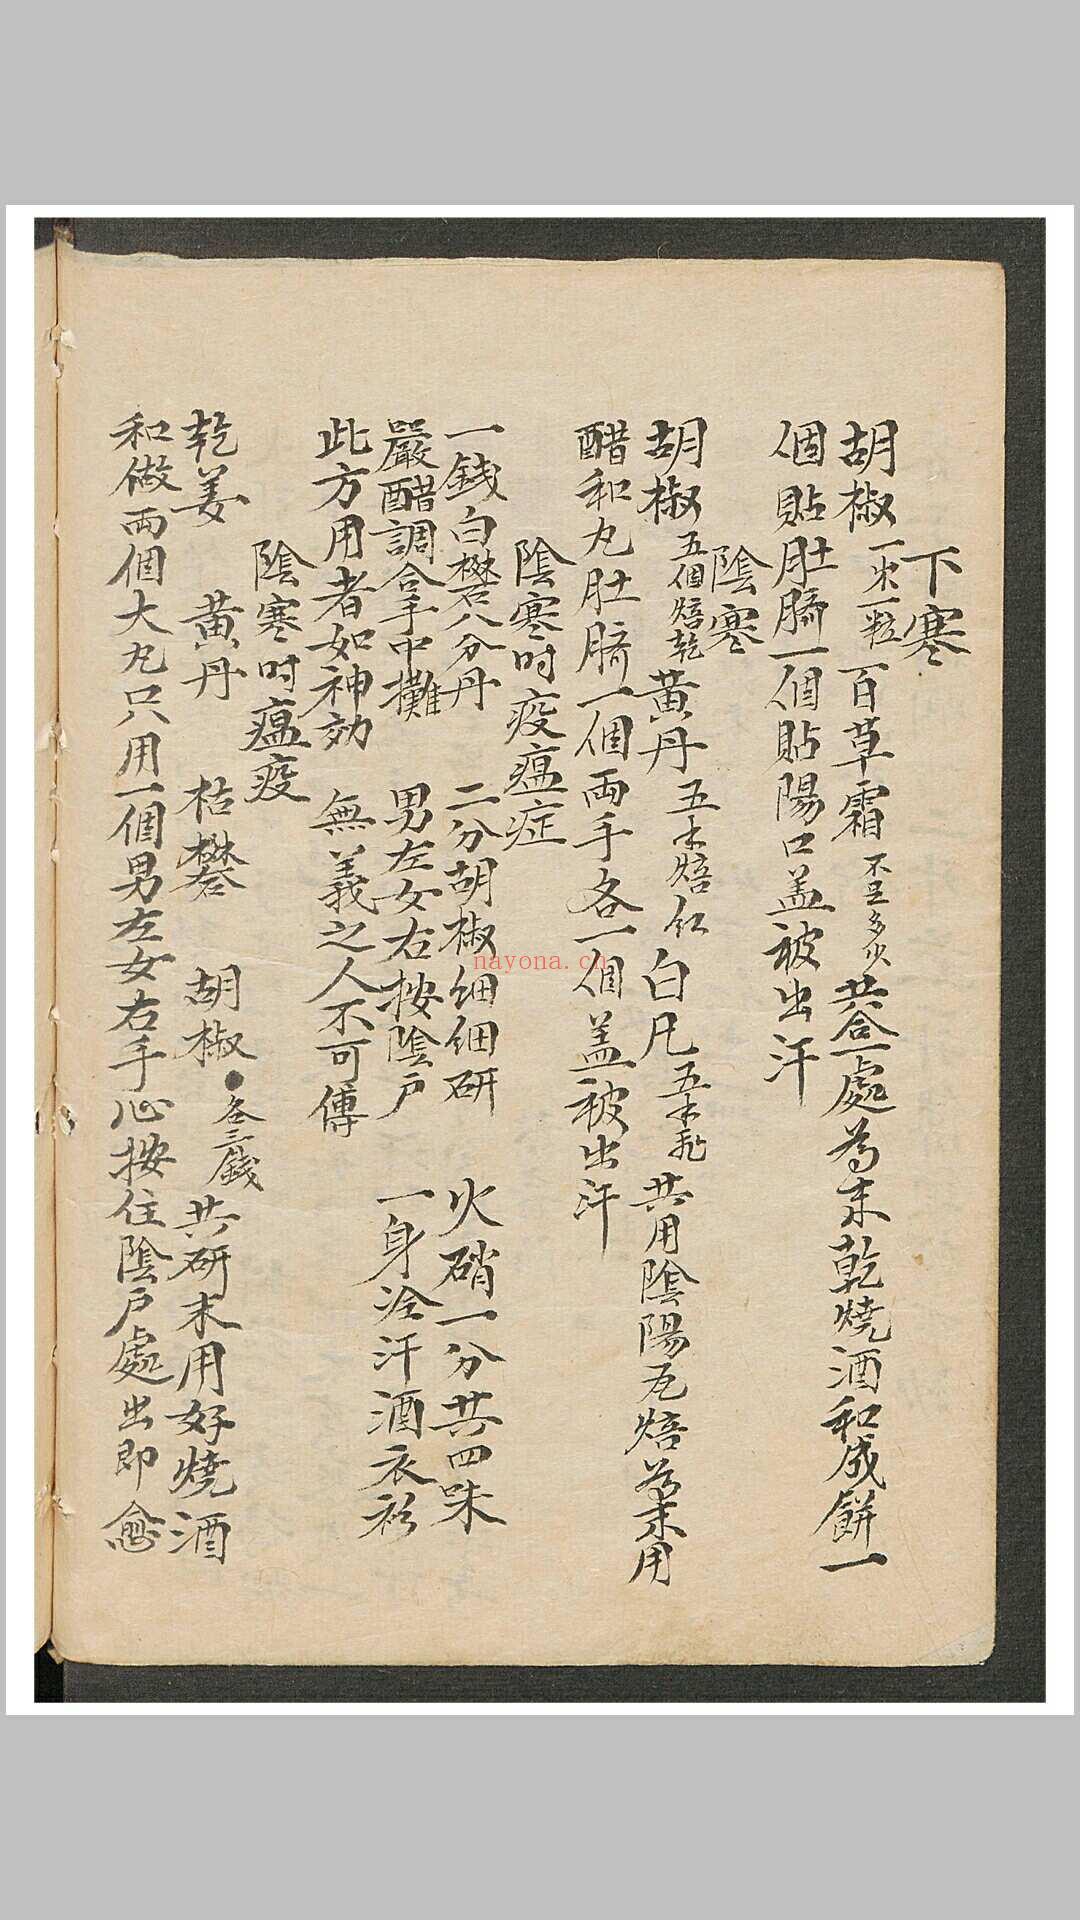 下寒
胡椒一歲一粒 百草霜不足多少共合一處為末乾燒酒和成餅一
個貼肚臍一個貼陽口盖被出汗
陰寒
胡椒五個焙乾 黃丹五木焙紅 白凡五木 共用陰陽瓦焙為末用
醋和丸肚臍一個両手各一個盖被出汗
陰寒时疫瘟症
一錢白礬八分丹 二分胡椒细细研 火硝一分共四味
嚴醋調合手中攤 男左女右按陰户 一身冷汗洒衣衫
此方用者如神効 無義之人不可傳
陰寒时瘟疫
乾姜 黃丹 枯礬 胡椒各三錢 共研末用好燒酒
和做両個大丸只用一個男左女右手心按住陰户處出即愈
nayona.cn